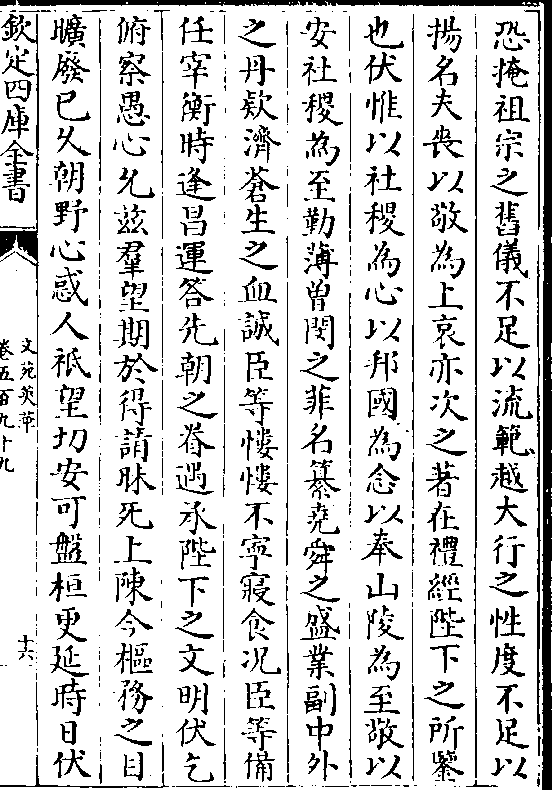 恐掩祖宗之舊儀不足以流範越大行之性度不足以
揚名夫喪以敬為上哀亦次之著在禮經陛下之所鑒
也伏惟以社稷為心以邦國為念以奉山陵為至敬以
安社稷為至勤薄曽閔之非名纂堯舜之盛業副中外
之丹欵濟蒼生之血誠臣等悽悽不寧寢食况臣等備
任宰衡時逢昌運答先朝之眷遇承陛下之文明伏乞
俯察愚心允兹羣望期於得請昧死上陳今樞務之日
曠廢已乆朝野心惑人祇望切安可盤桓更延時日伏
欽定四庫全書
文苑英華
卷五百九十九
十六